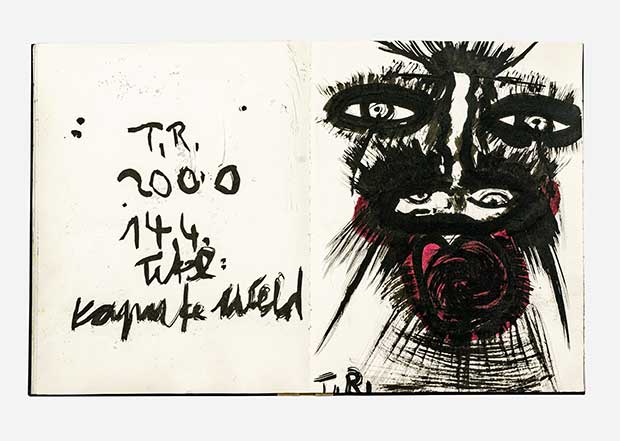 T.R.
2000
14.4.
Titel:
Kaputte Welt
T.R.